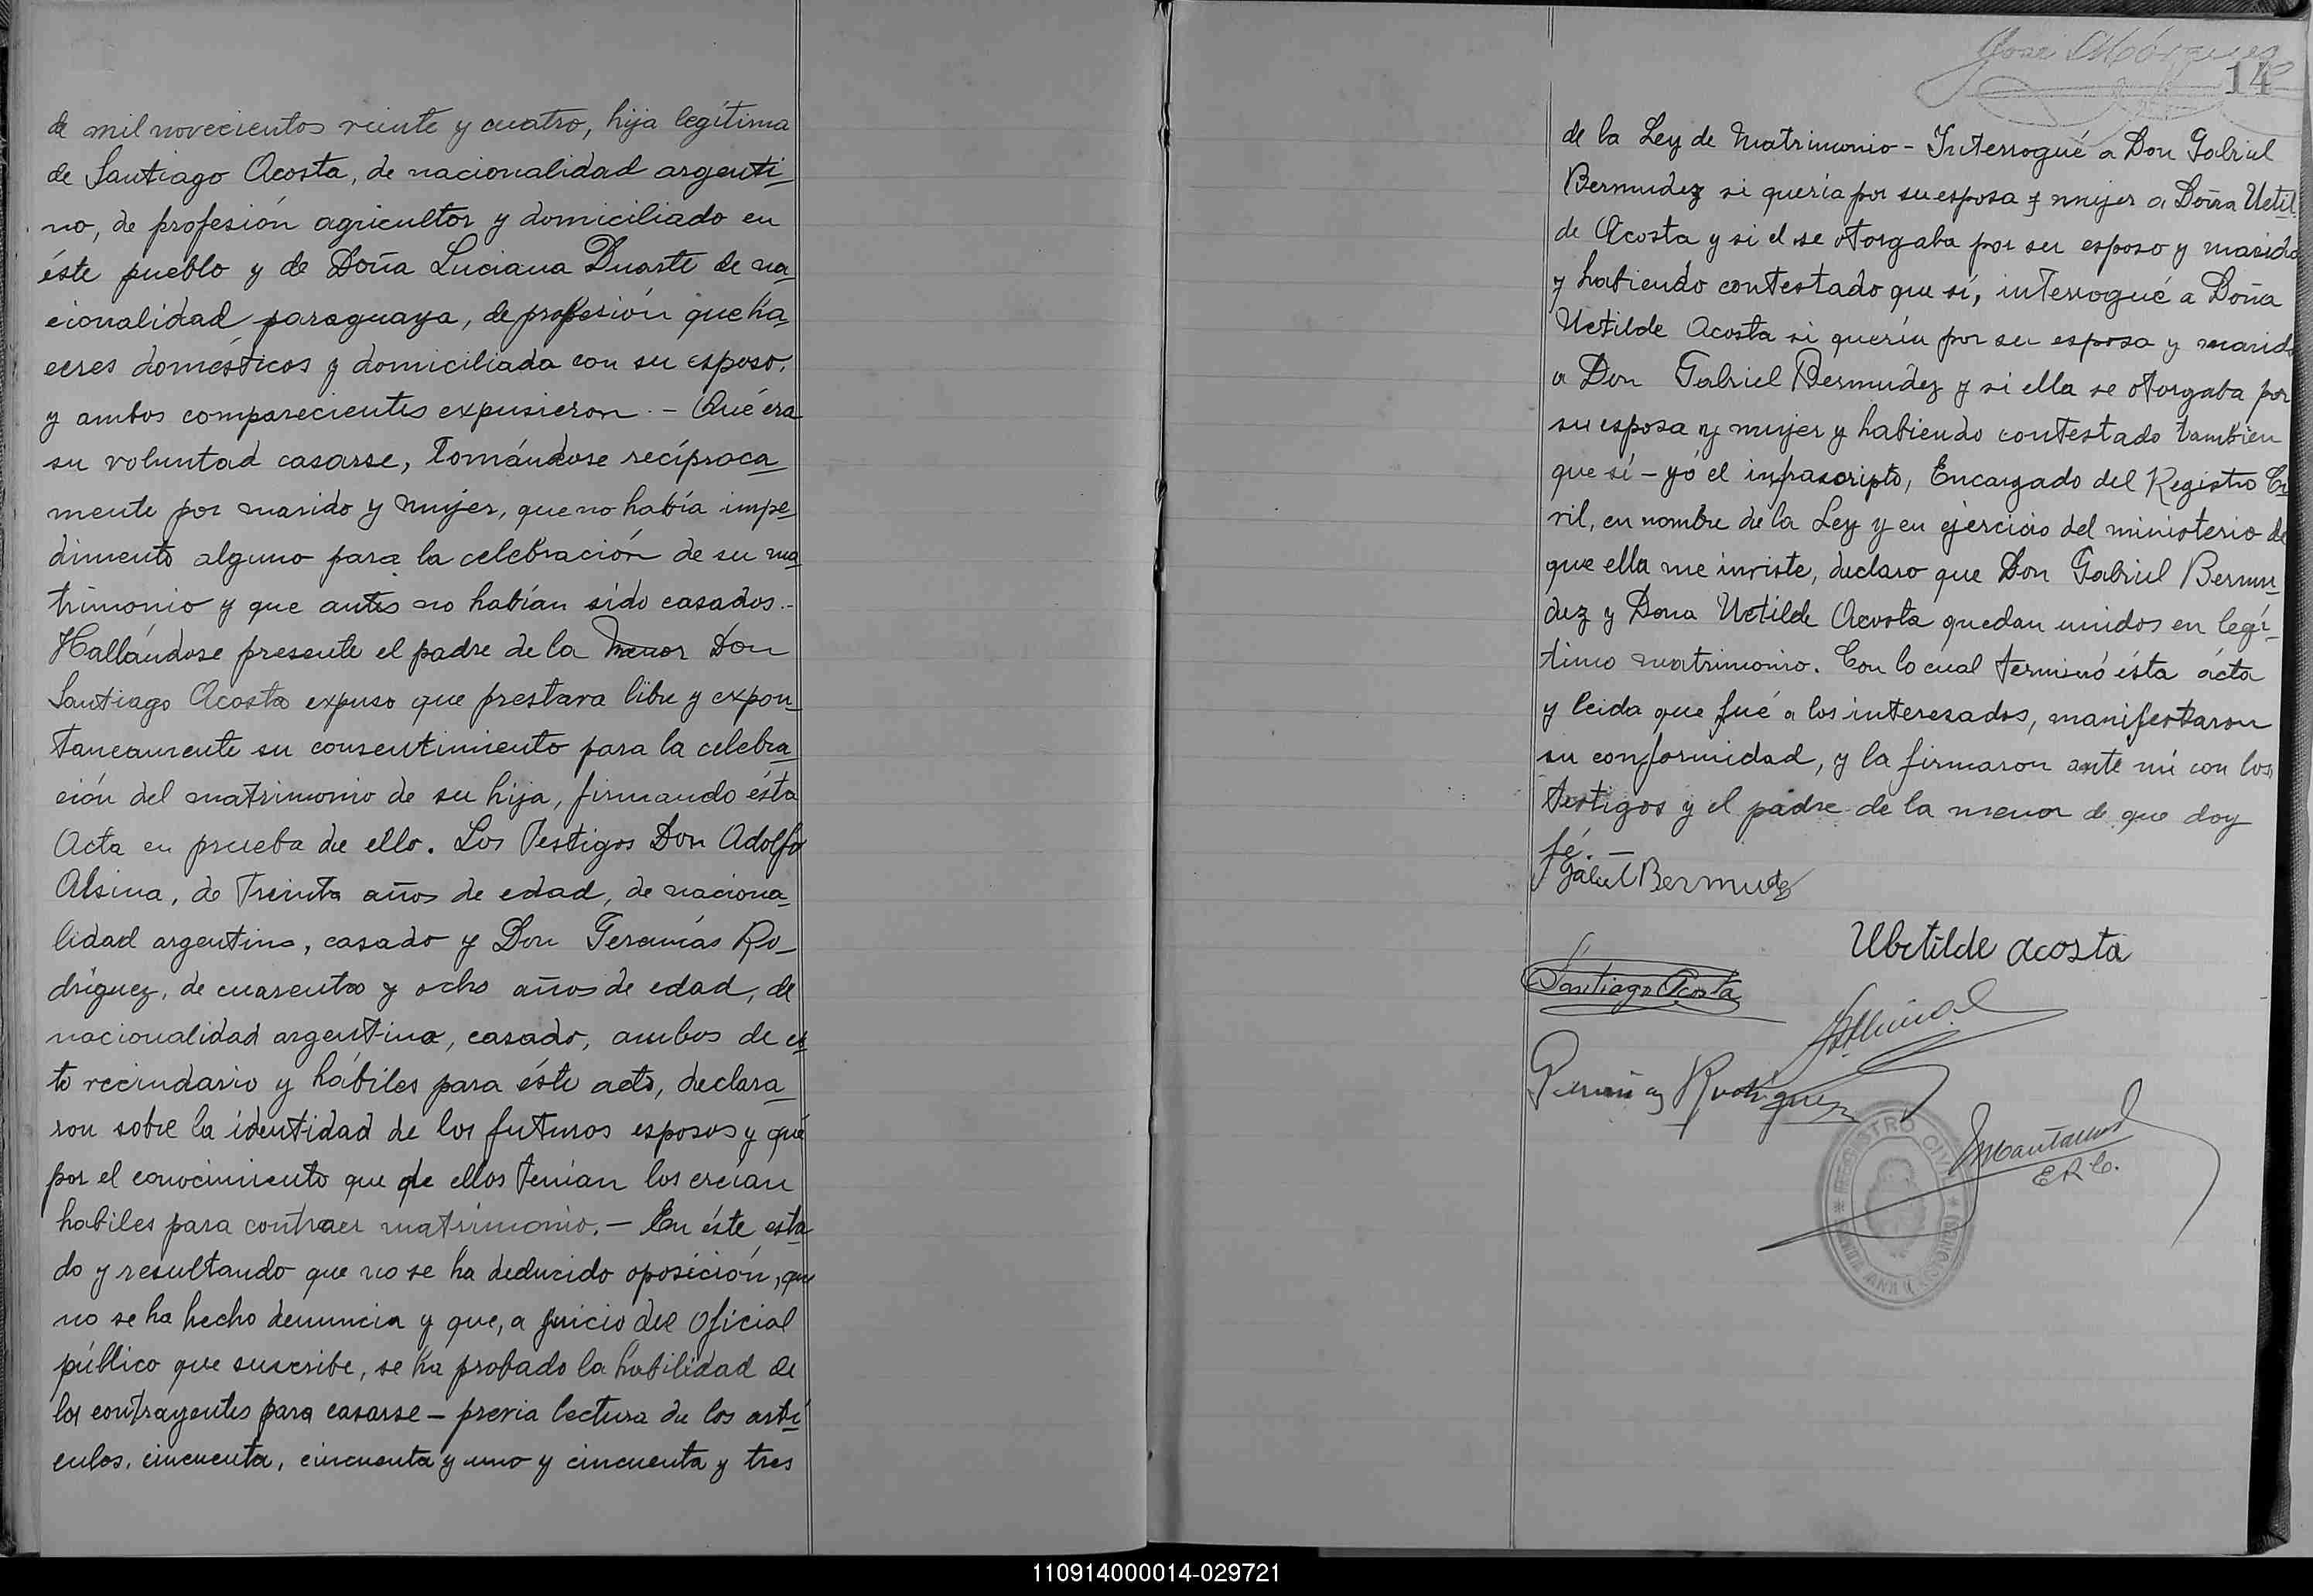 de mil novecientos veinte y cuatro, hija legítima
de Santiago Acosta, de nacionalidad argenti-
no, de profesión agricultor y domiciliado en
éste pueblo y de Doña Luciana Duarte de na-
cionalidad paraguaya, de profesión queha-
ceres domésticos y domiciliada con su esposo.
y ambos comparecientes expusieron.- Qué era
su voluntad casarse, tomándose recíproca-
mente por marido y mujer, que no había impe-
dimento alguno para la celebración de su ma-
trimonio y que antes no habían sido casados.-
Hallándose presente el padre de la menor Don
Santiago Acosta expuso que prestava libre y expon-
taneamente su consentimiento para la celebra-
ción del matrimonio de su hija, firmando ésta
Acta en prueba de ello. Los Testigos Don Adolfo
Alsina, de Treinta años de edad, de naciona-
lidad argentina, casado y Don Geremías Ro-
dríguez, de cuarenta y ocho años de edad, de
nacionalidad argentina, casado, ambos de es-
te vecindario y hábiles para éste acto, declara-
ron sobre la identidad de los futuros esposos y qué
por el conocimiento que de ellos tenían los creían
habiles para contraer matrimonio.- En éste esta-
do y resultando que no se ha deducido oposición, que
no se ha hecho denuncia y que, a juicio del Oficial
público que suscribe, se ha probado la habilidad de
los contrayentes para casarse - previa lectura de los artí-
culos, cincuenta, cincuenta y uno y cincuenta y tres
14
de la Ley de Matrimonio - Interrogué a Don Gabriel
Bermudez si quería por su esposa y mujer a Doña Uctil
de Acosta y si el se otorgaba por su esposo y marido
y habiendo contestado que sí, interrogué a Doña
Uctilde Acosta si quería por su esposo y marido
a Don Gabriel Bermudez y si ella se otorgaba por
su esposa y mujer y habiendo contestado tambien
que sí - yó el infrascripto, Encargado del Registro Ci
vil, en nombre de la Ley y en ejercicio del ministerio de
que ella me inviste, declaro que Don Gabriel Bermu-
dez y Dona Uctilde Acosta quedan unidos en legí-
timo matrimonio. Con lo cual terminó ésta ácta
y leida que fué a los interesados, manifestaron
su conformidad, y la firmaron ante mí con los
testigos y el padre de la menor de que doy
fé.-
Bermudez
Ubetilde acosta
Santiago Acosta
Rodriguez
E.R.C.
REGISTRO CIVIL
110914000014-029721